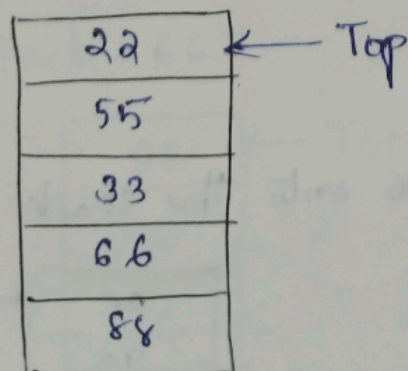 22 ← Top
55
33
66
88